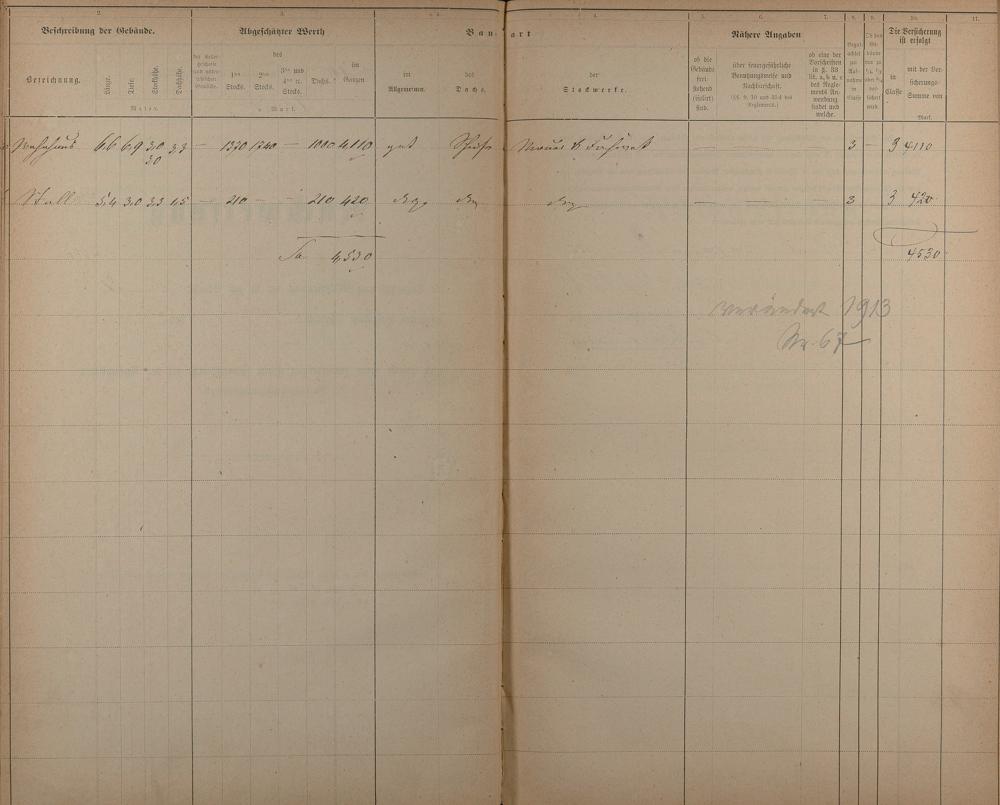 2. 3. 4. 4. 5. 6. 7. 8. 9. 10. 11.
Beschreibung der Gebäude. Abgeschätzter Werth Bauart Nähere Angaben Die Versicherung ist erfolgt
Bezeichnung. Länge. Tiefe. Stockhöhe. Dachhöhe.
Meter.
des
1ten Stocks. 2ten Stocks. 3ten und 4ten u. Stocks. Dachs. im Ganzen
Mark.
im Allgemeinen. des Dachs. der Stockwerke.
ob die Gebäude frei stehend (isolirt) sind.
über feuergefährliche Benutzungsweise und Nachbarschaft.
ob eine der Vorschriften in §. 33 lit. a, b u. c des Reglements Anwendung findet und welche.
in Classe mit der Versicherungs-Summe von
Mark.
Wohnhaus 6,6 6,9 3,0 3,3 — 1370 1740 — 1000 4110 gut Mauer & — — 3 — 3 4110
3,0
Stall 5,4 3,0 3,3 1,5 — 210 — — 210 420 — — 3 3 420
Sa. 4,530 4530
verändert 1913
Nr. 67